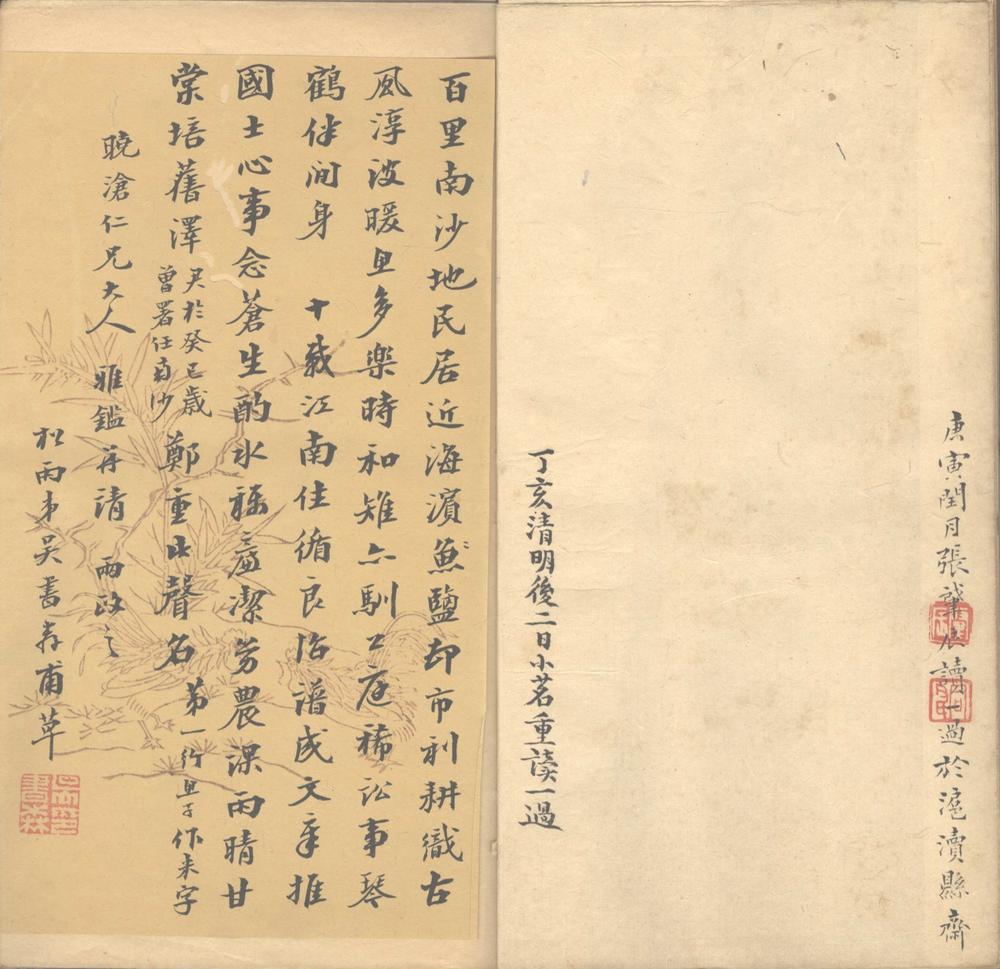 庚寅閏月張讀一過於滬瀆縣齋
丁亥清明後二日小茗重讀一過
百里南沙地民居近海濱魚鹽却市利耕織古
風淳波暖魚多樂時和雉亦馴公庭稀訟事琴
鶴伴閒身 十載江南住循良治譜成文章推
國士心事念蒼生酌水稱廉潔勞農課雨晴甘
棠培舊澤 君於癸巳歲
曾署任南沙 鄭重此聲名 第一行魚字作米字
曉滄仁兄大人 雅鑑并請 兩政之
松雨弟吳書森甫草